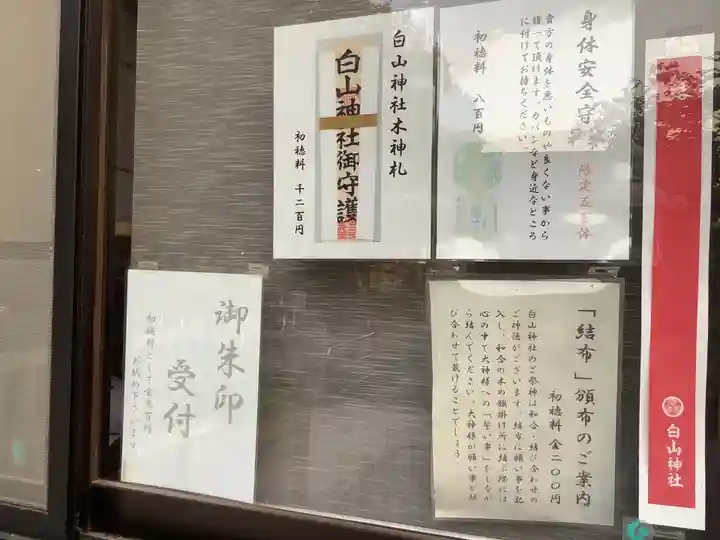 白山神社木神札
白山神社御守護
初穂料　千二百円
身体安全守
限定五百体
貴方の身体を悪いものや良くない事から
護って頂けます。カバンなど身近なところ
に付けてお持ちください。
初穂料　八百円
御朱印
受付
初穂料として金
お納め下さいませ
「結布」頒布のご案内
初穂料　金二〇〇円
白山神社のご祭神は和合・結び合わせの
ご神徳がございます。結布に願い事を記
入し、和合の木の願掛け所に結ぶ際には
心の中で大神様への「誓い事」をしなが
ら結んでください。大神様が願い事と結
び合わせて戴けることでしょう。
白山神社